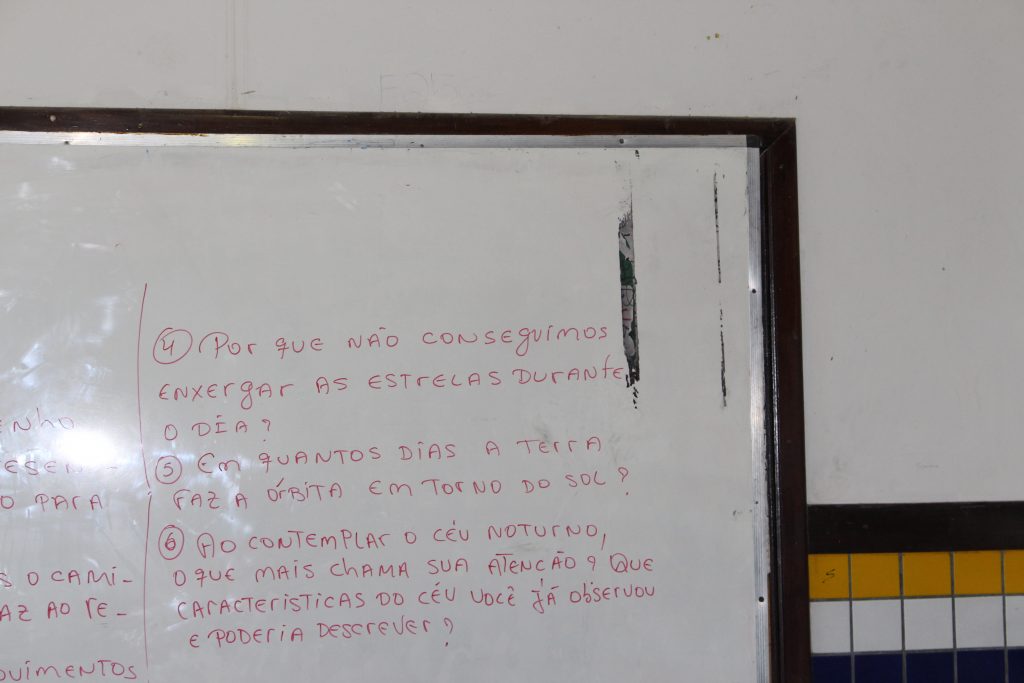 ENHO
ESEN-
O PARA
S O CAMI-
AZ AO RE-
OVIMENTOS
④ Por que NÃO CONSEGUIMOS
ENXERGAR AS ESTRELAS DURANTE
O DÍA?
⑤ Em QUANTOS DIAS A TERRA
FAZ A ÓRBITA EM TORNO DO SOL?
⑥ AO CONTEMPLAR O CÉU NOTURNO,
O QUE MAIS CHAMA SUA ATENCÃO? QUE
CARACTERISTICAS DO CÉU VOCÊ JÁ OBSERVOU
E PODERIA DESCREVER?